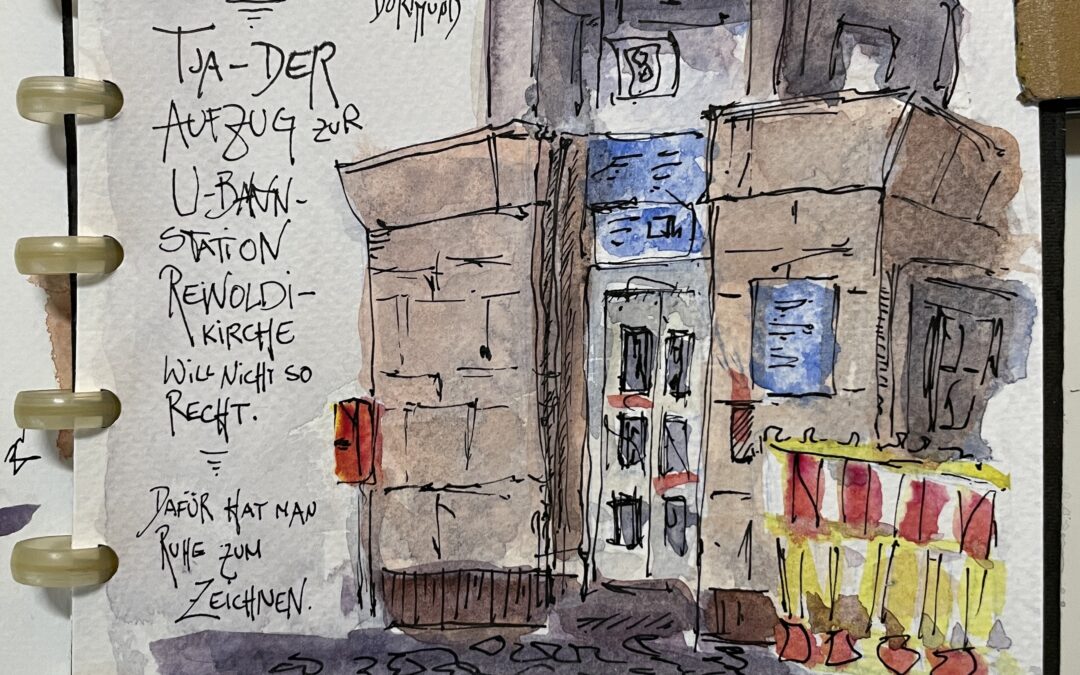 DORTMUND
TJA – DER
AUFZUG ZUR
U-BAHN-
STATION
REINOLDI-
KIRCHE
WILL NICHT SO
RECHT.
DAFÜR HAT MAN
RUHE ZUM
ZEICHNEN.